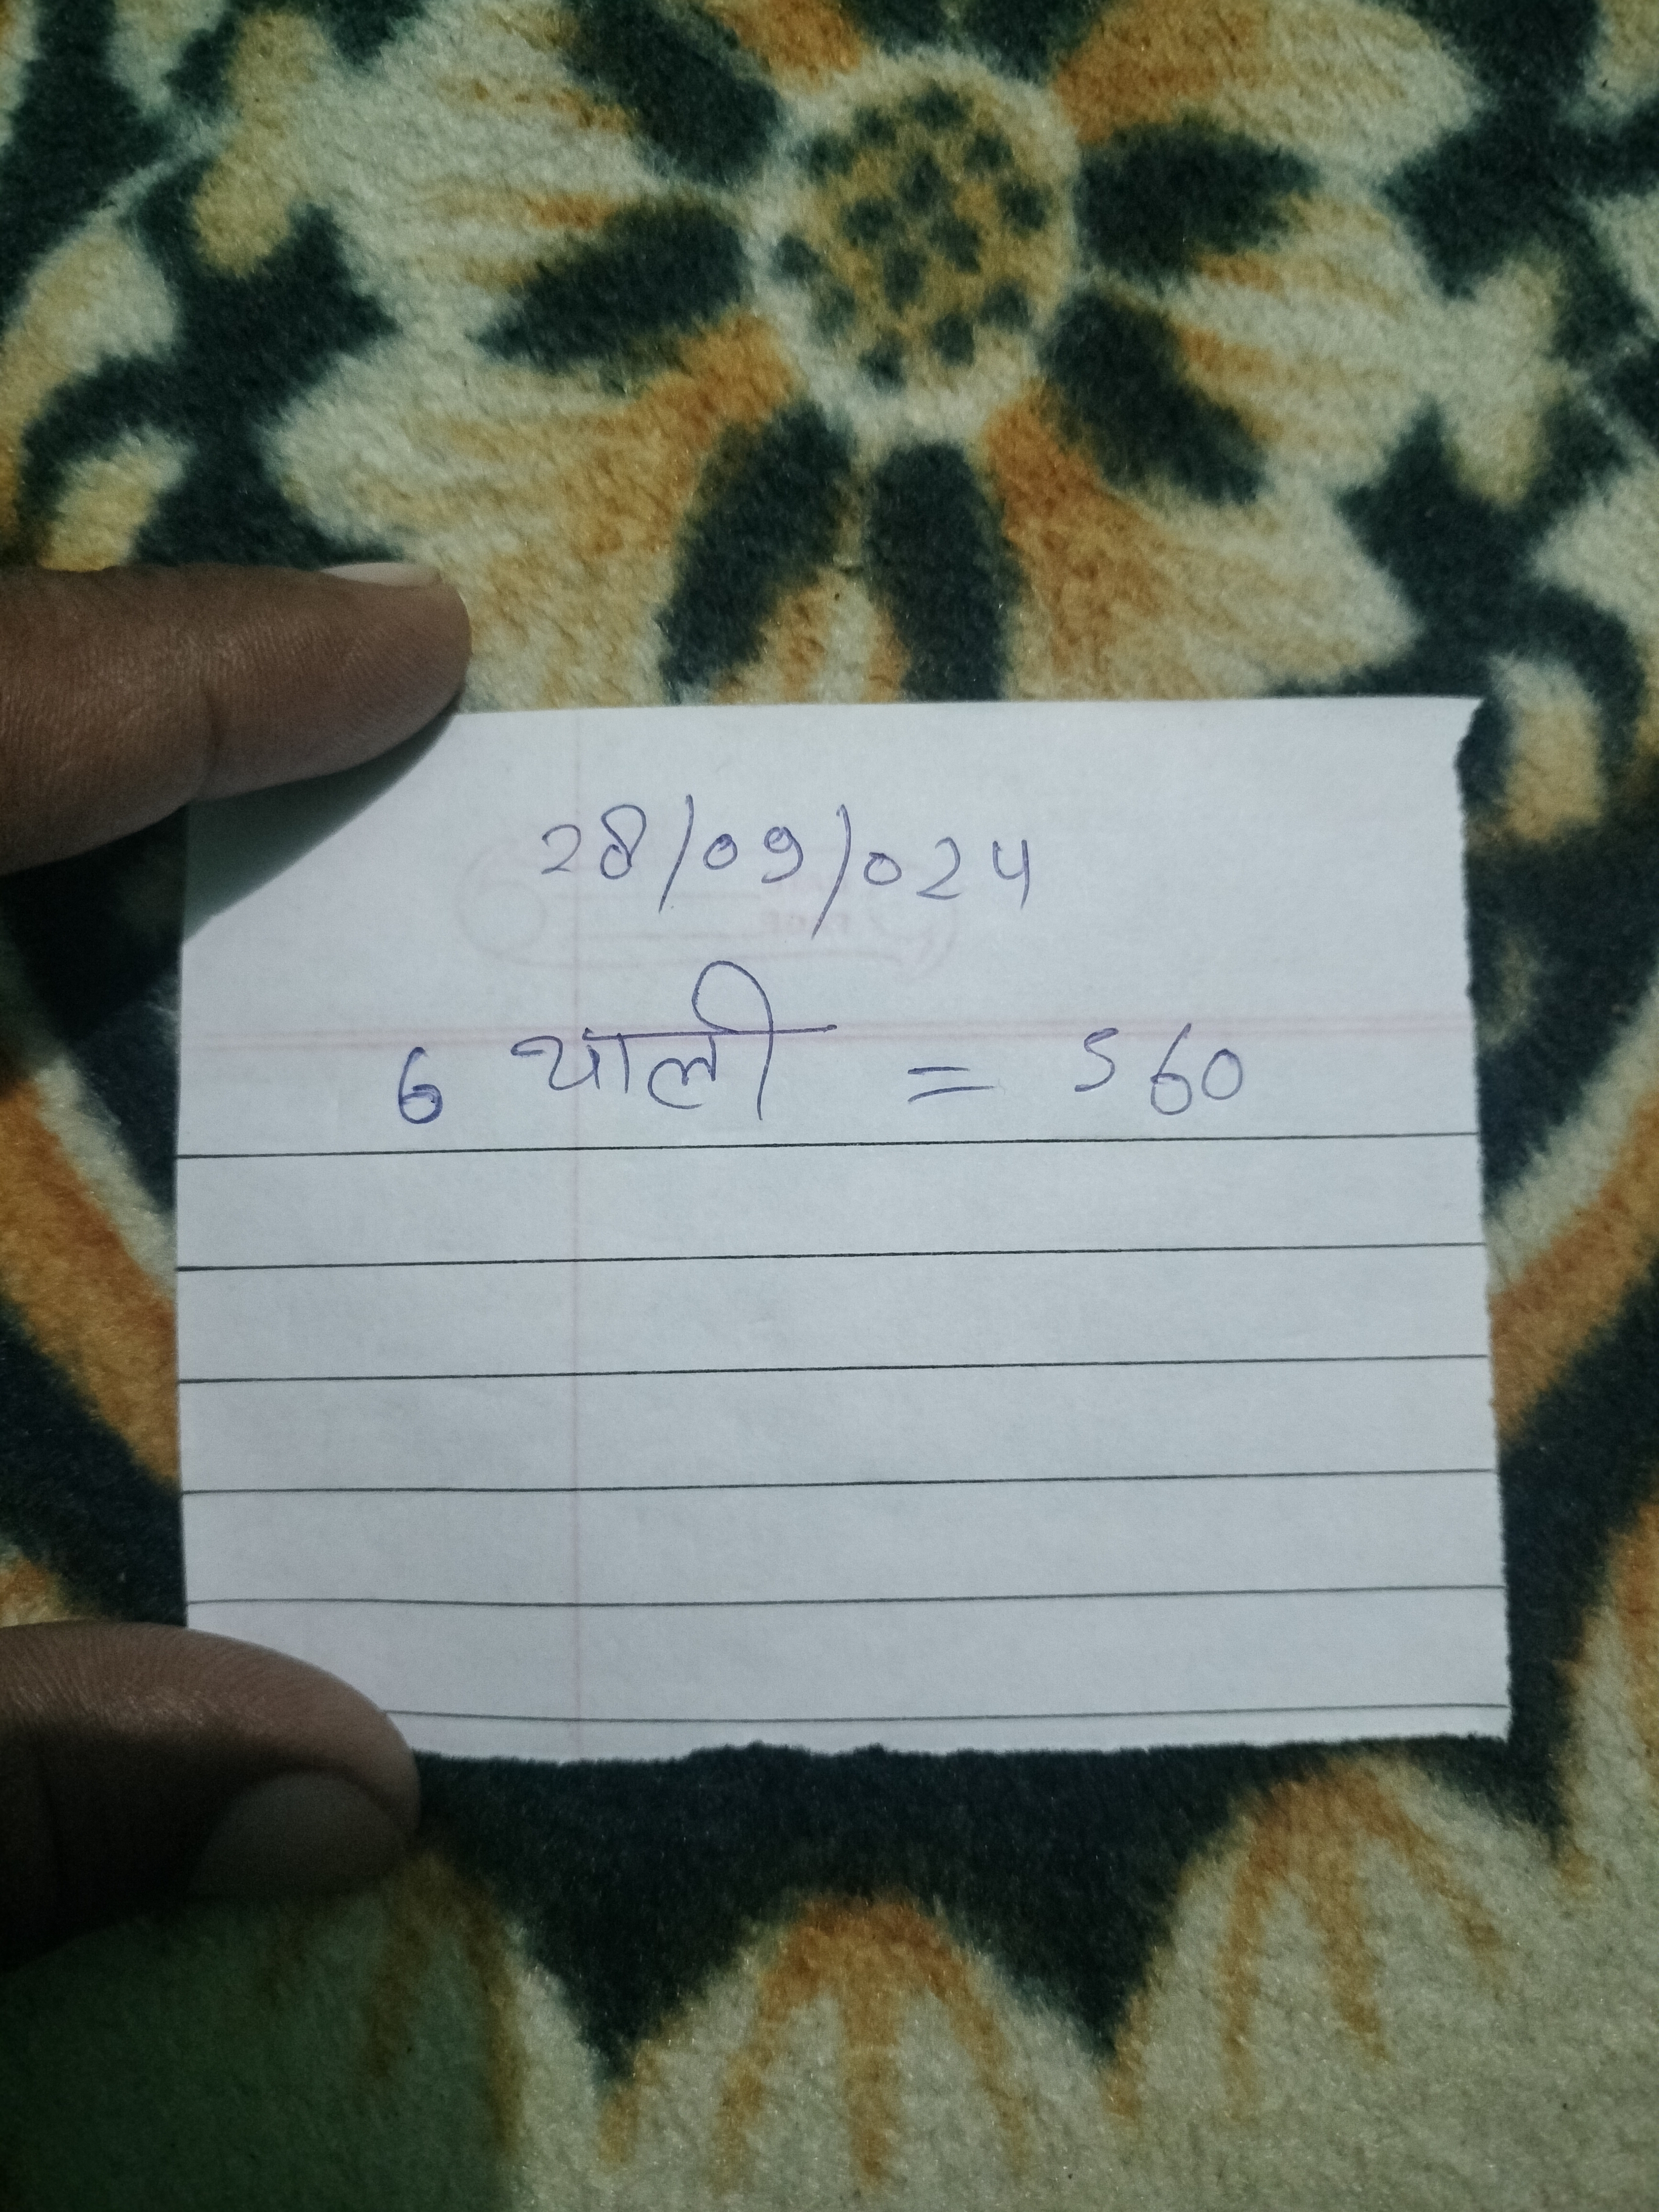 28/09/024
6 थाली = 560